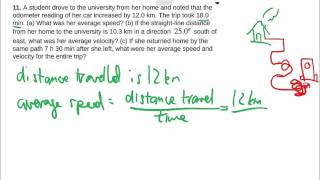 11. A student drove to the university from her home and noted that the
odometer reading of her car increased by 12.0 km. The trip took 18.0
min. (a) What was her average speed? (b) If the straight-line distance
from her home to the university is 10.3 km in a direction 25.0° south
of east, what was her average velocity? (c) If she returned home by the
same path 7 h 30 min after she left, what were her average speed and
velocity for the entire trip?
distance travelled is 12 km
average speed = distance travel / time = 12 km